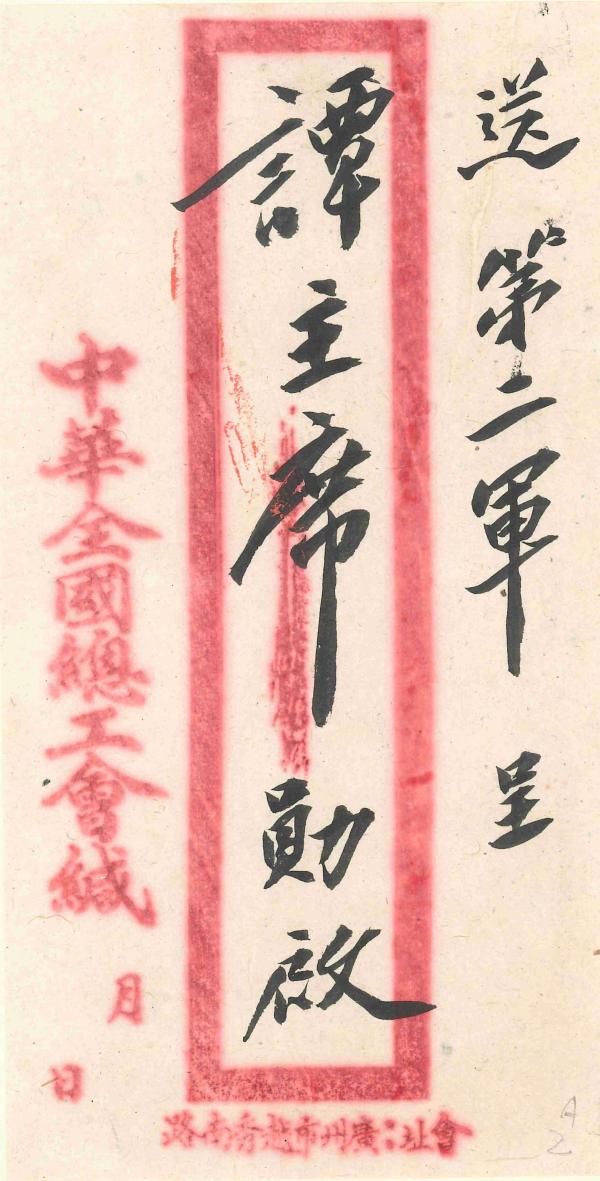 送第二軍 呈
譚主席 勛啟
中華全國總工會緘
月
日
會址：廣州市越秀南路
A
2